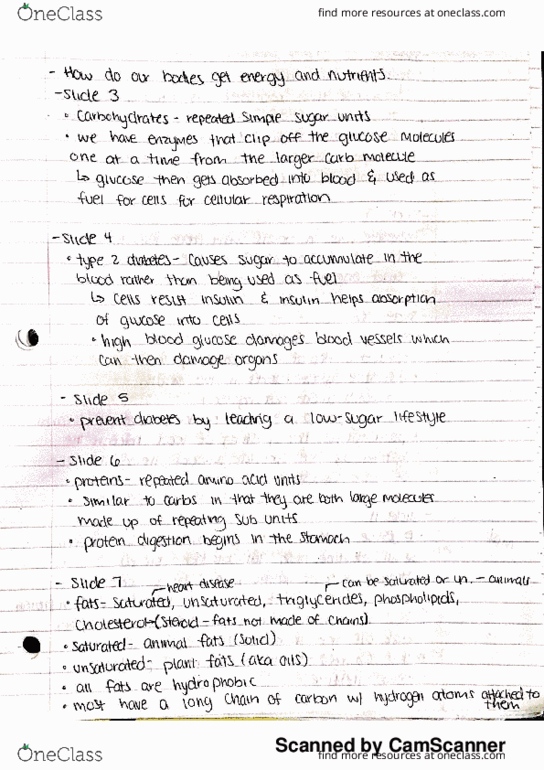 OneClass
find more resources at oneclass.com
- How do our bodies get energy and nutrients.
- Slide 3
• Carbohydrates - repeated simple sugar units
• we have enzymes that clip off the glucose molecules
one at a time from the larger carb molecule
↳ glucose then gets absorbed into blood & used as
fuel for cells for cellular respiration
- Slide 4
• type 2 diabetes - causes sugar to accumulate in the
blood rather than being used as fuel
↳ cells resist insulin & insulin helps absorption
of glucose into cells
• high blood glucose damages blood vessels which
can then damage organs
- Slide 5
• prevent diabetes by leading a low-sugar lifestyle
- Slide 6
• proteins - repeated amino acid units
• similar to carbs in that they are both large molecules
made up of repeating sub units
• protein digestion begins in the stomach
- Slide 7
heart disease
can be saturated or un. - animals
• fats - saturated, unsaturated, triglycerides, phospholipids,
cholesterol (steroid - fats not made of chains)
• saturated - animal fats (solid)
• unsaturated - plant fats (aka oils)
• all fats are hydrophobic
• most have a long chain of carbon w/ hydrogen atoms attached to
them
Scanned by CamScanner
OneClass
find more resources at oneclass.com